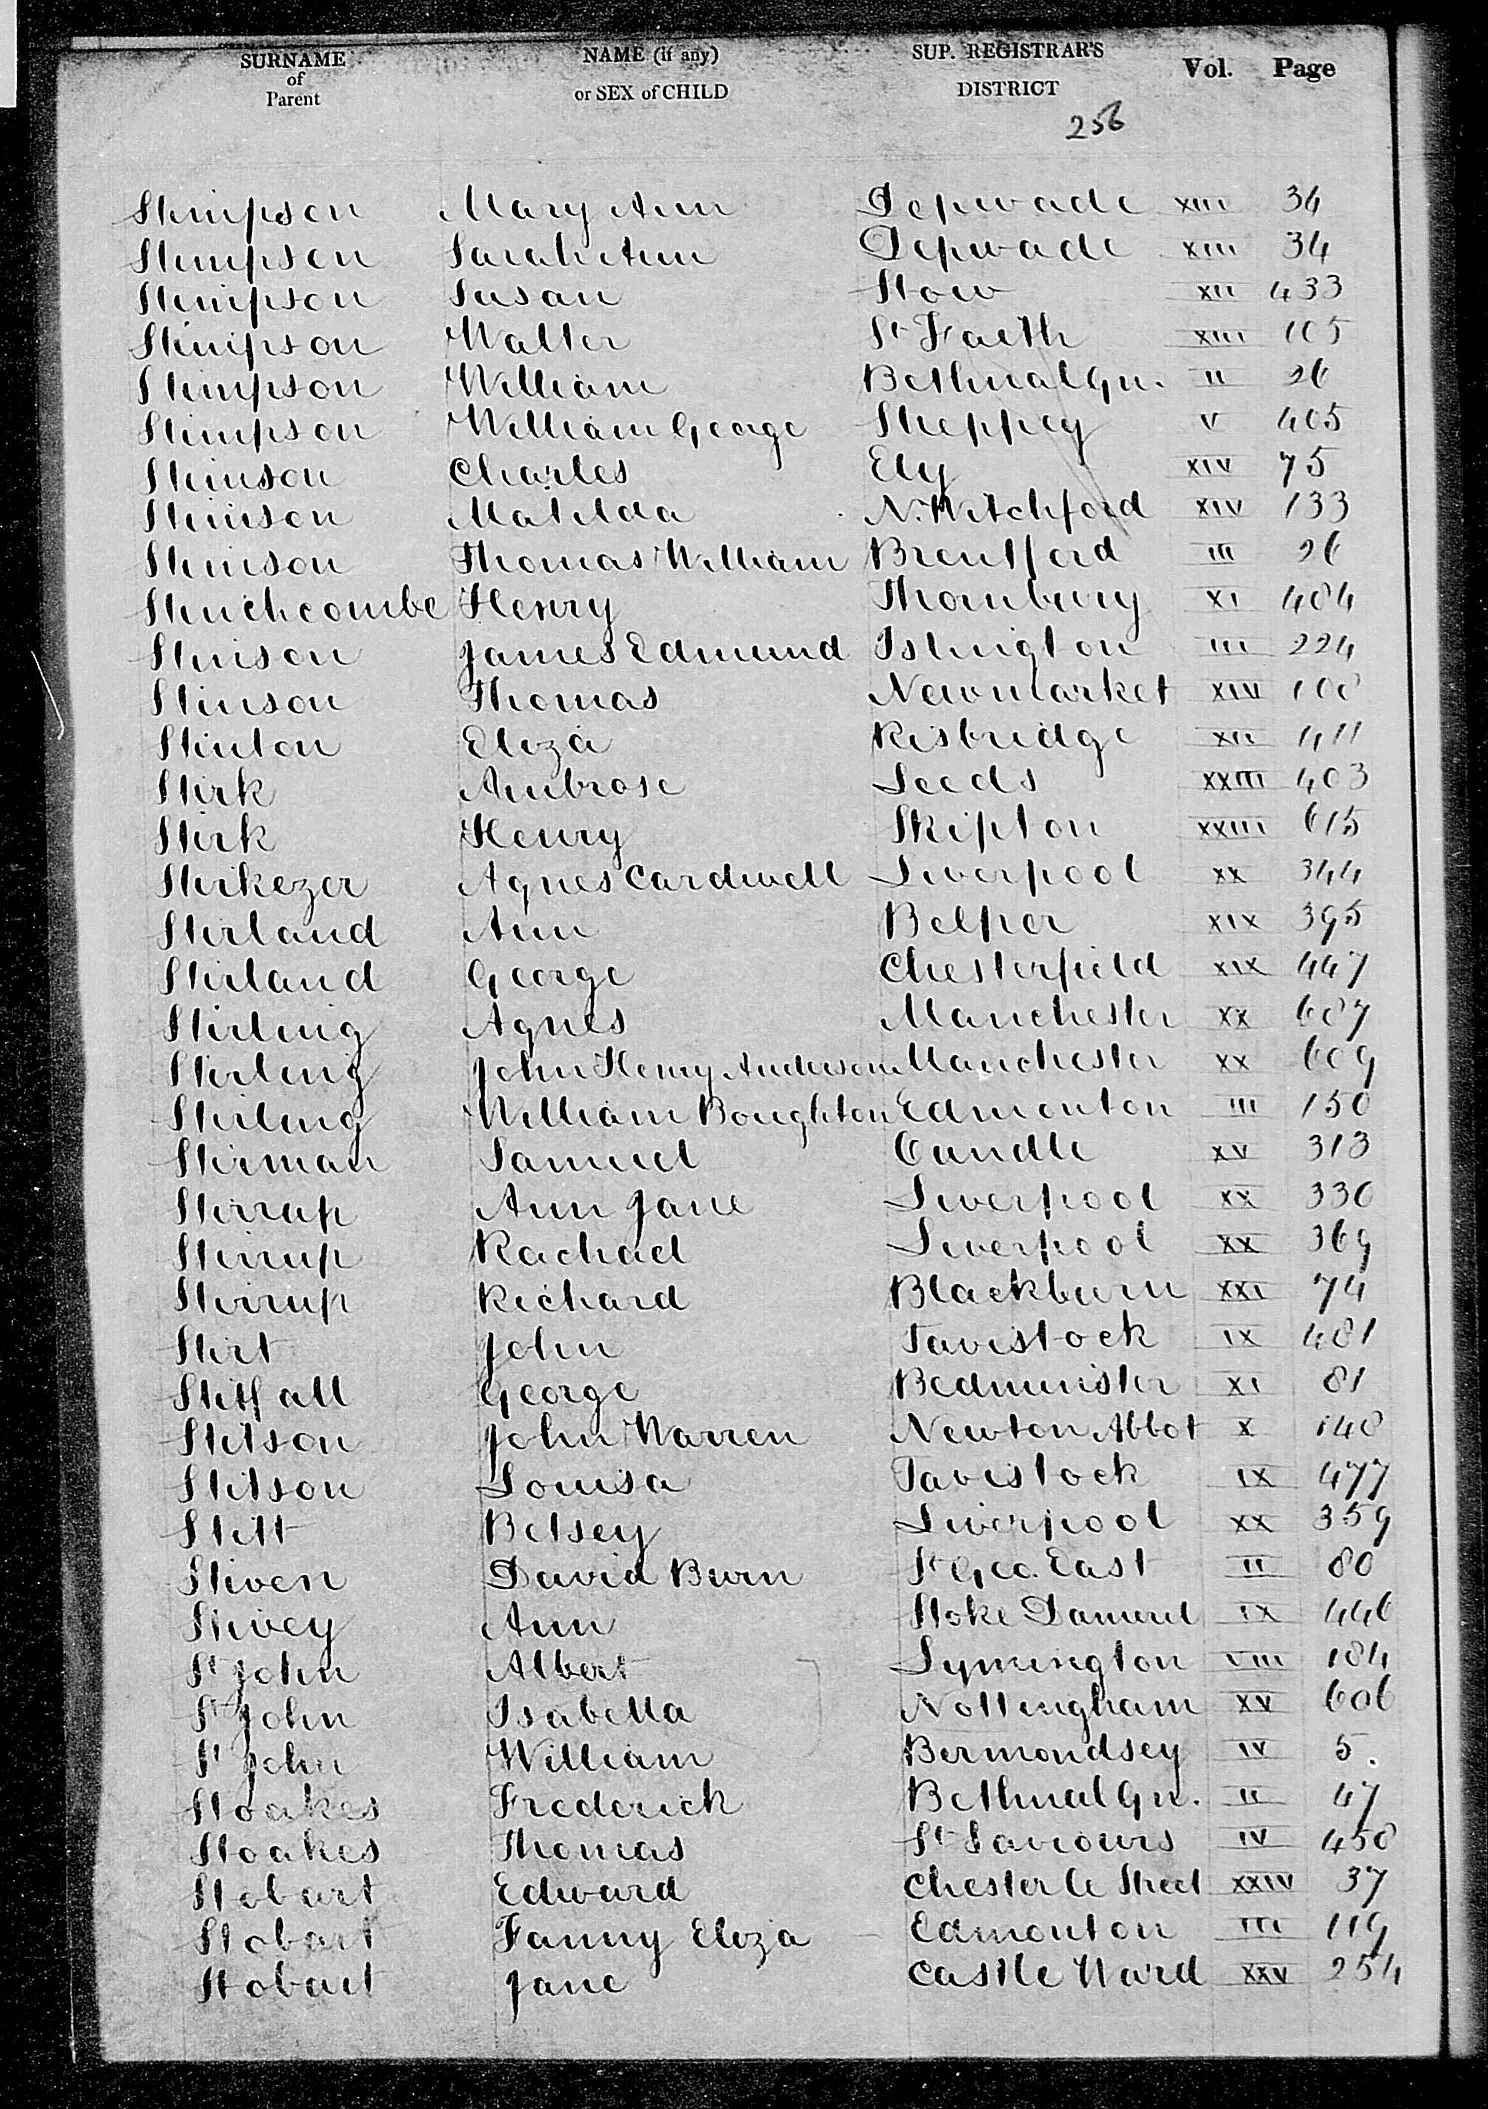 SURNAME of Parent NAME (if any) or SEX of CHILD SUP. REGISTRAR'S DISTRICT Vol. Page
256
Stimpson Mary Ann Depwade XIII 34
Stimpson Sarah Ann Depwade XIII 34
Stimpson Susan Stow XII 433
Stimpson Walter St Faith XIII 105
Stimpson William Bethnal Gn. II 26
Stimpson William George Sheppey V 405
Stimson Charles Ely XIV 75
Stimson Matilda N. Witchford XIV 133
Stimson Thomas William Brentford III 26
Stinchcombe Henry Thornbury XI 484
Stinson James Edmund Islington III 224
Stinson Thomas Newmarket XIV 100
Stinton Eliza Risbridge XII 411
Stirk Ambrose Leeds XXIII 403
Stirk Henry Skipton XXIII 615
Stirkezer Agnes Cardwell Liverpool XX 344
Stirland Ann Belper XIX 395
Stirland George Chesterfield XIX 447
Stirling Agnes Manchester XX 607
Stirling John Henry Anderson Manchester XX 609
Stirling William Boughton Edmonton III 150
Stirman Samuel Oundle XV 313
Stirrap Ann Jane Liverpool XX 330
Stirrup Rachael Liverpool XX 369
Stirrup Richard Blackburn XXI 74
Stirt John Tavistock IX 481
Stitfall George Bedminster XI 81
Stitson John Warren Newton Abbot X 140
Stitson Louisa Tavistock IX 477
Stitt Betsey Liverpool XX 359
Stiven David Burn St Geo. East II 80
Stivey Ann Stoke Damerel IX 446
St John Albert Lymington VIII 184
St John Isabella Nottingham XV 606
St John William Bermondsey IV 5.
Stoakes Frederick Bethnal Gn. II 47
Stoakes Thomas St Saviours IV 450
Stobart Edward Chester le Street XXIV 37
Stobart Fanny Eliza Edmonton III 119
Stobart Jane Castle Ward XXV 254